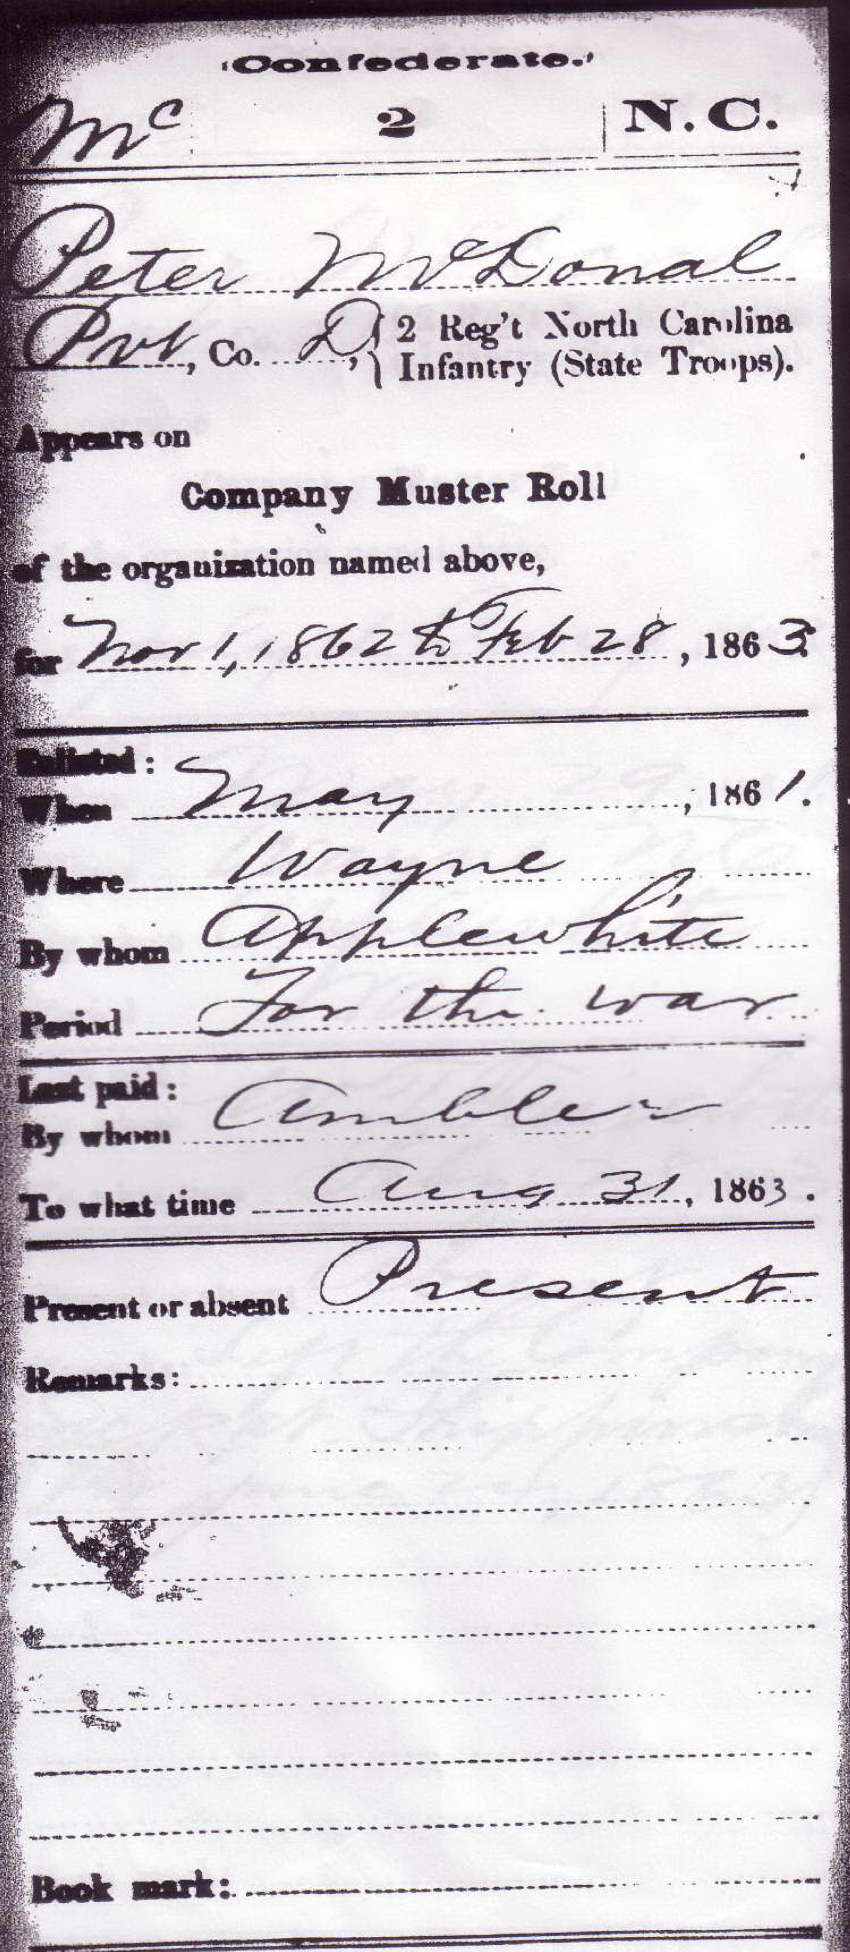 Confederate.
Mc 2 N.C.
Peter McDonal
Pvt, Co. D, 2 Reg't North Carolina
Infantry (State Troops).
Appears on
Company Muster Roll
of the organization named above,
for Nov 1, 1862 to Feb 28, 1863.
Enlisted:
When May, 1861.
Where Wayne
By whom Applewhite
Period For the war
Last paid:
By whom Ambler
To what time Aug 31, 1863.
Present or absent Present
Remarks:
Book mark: